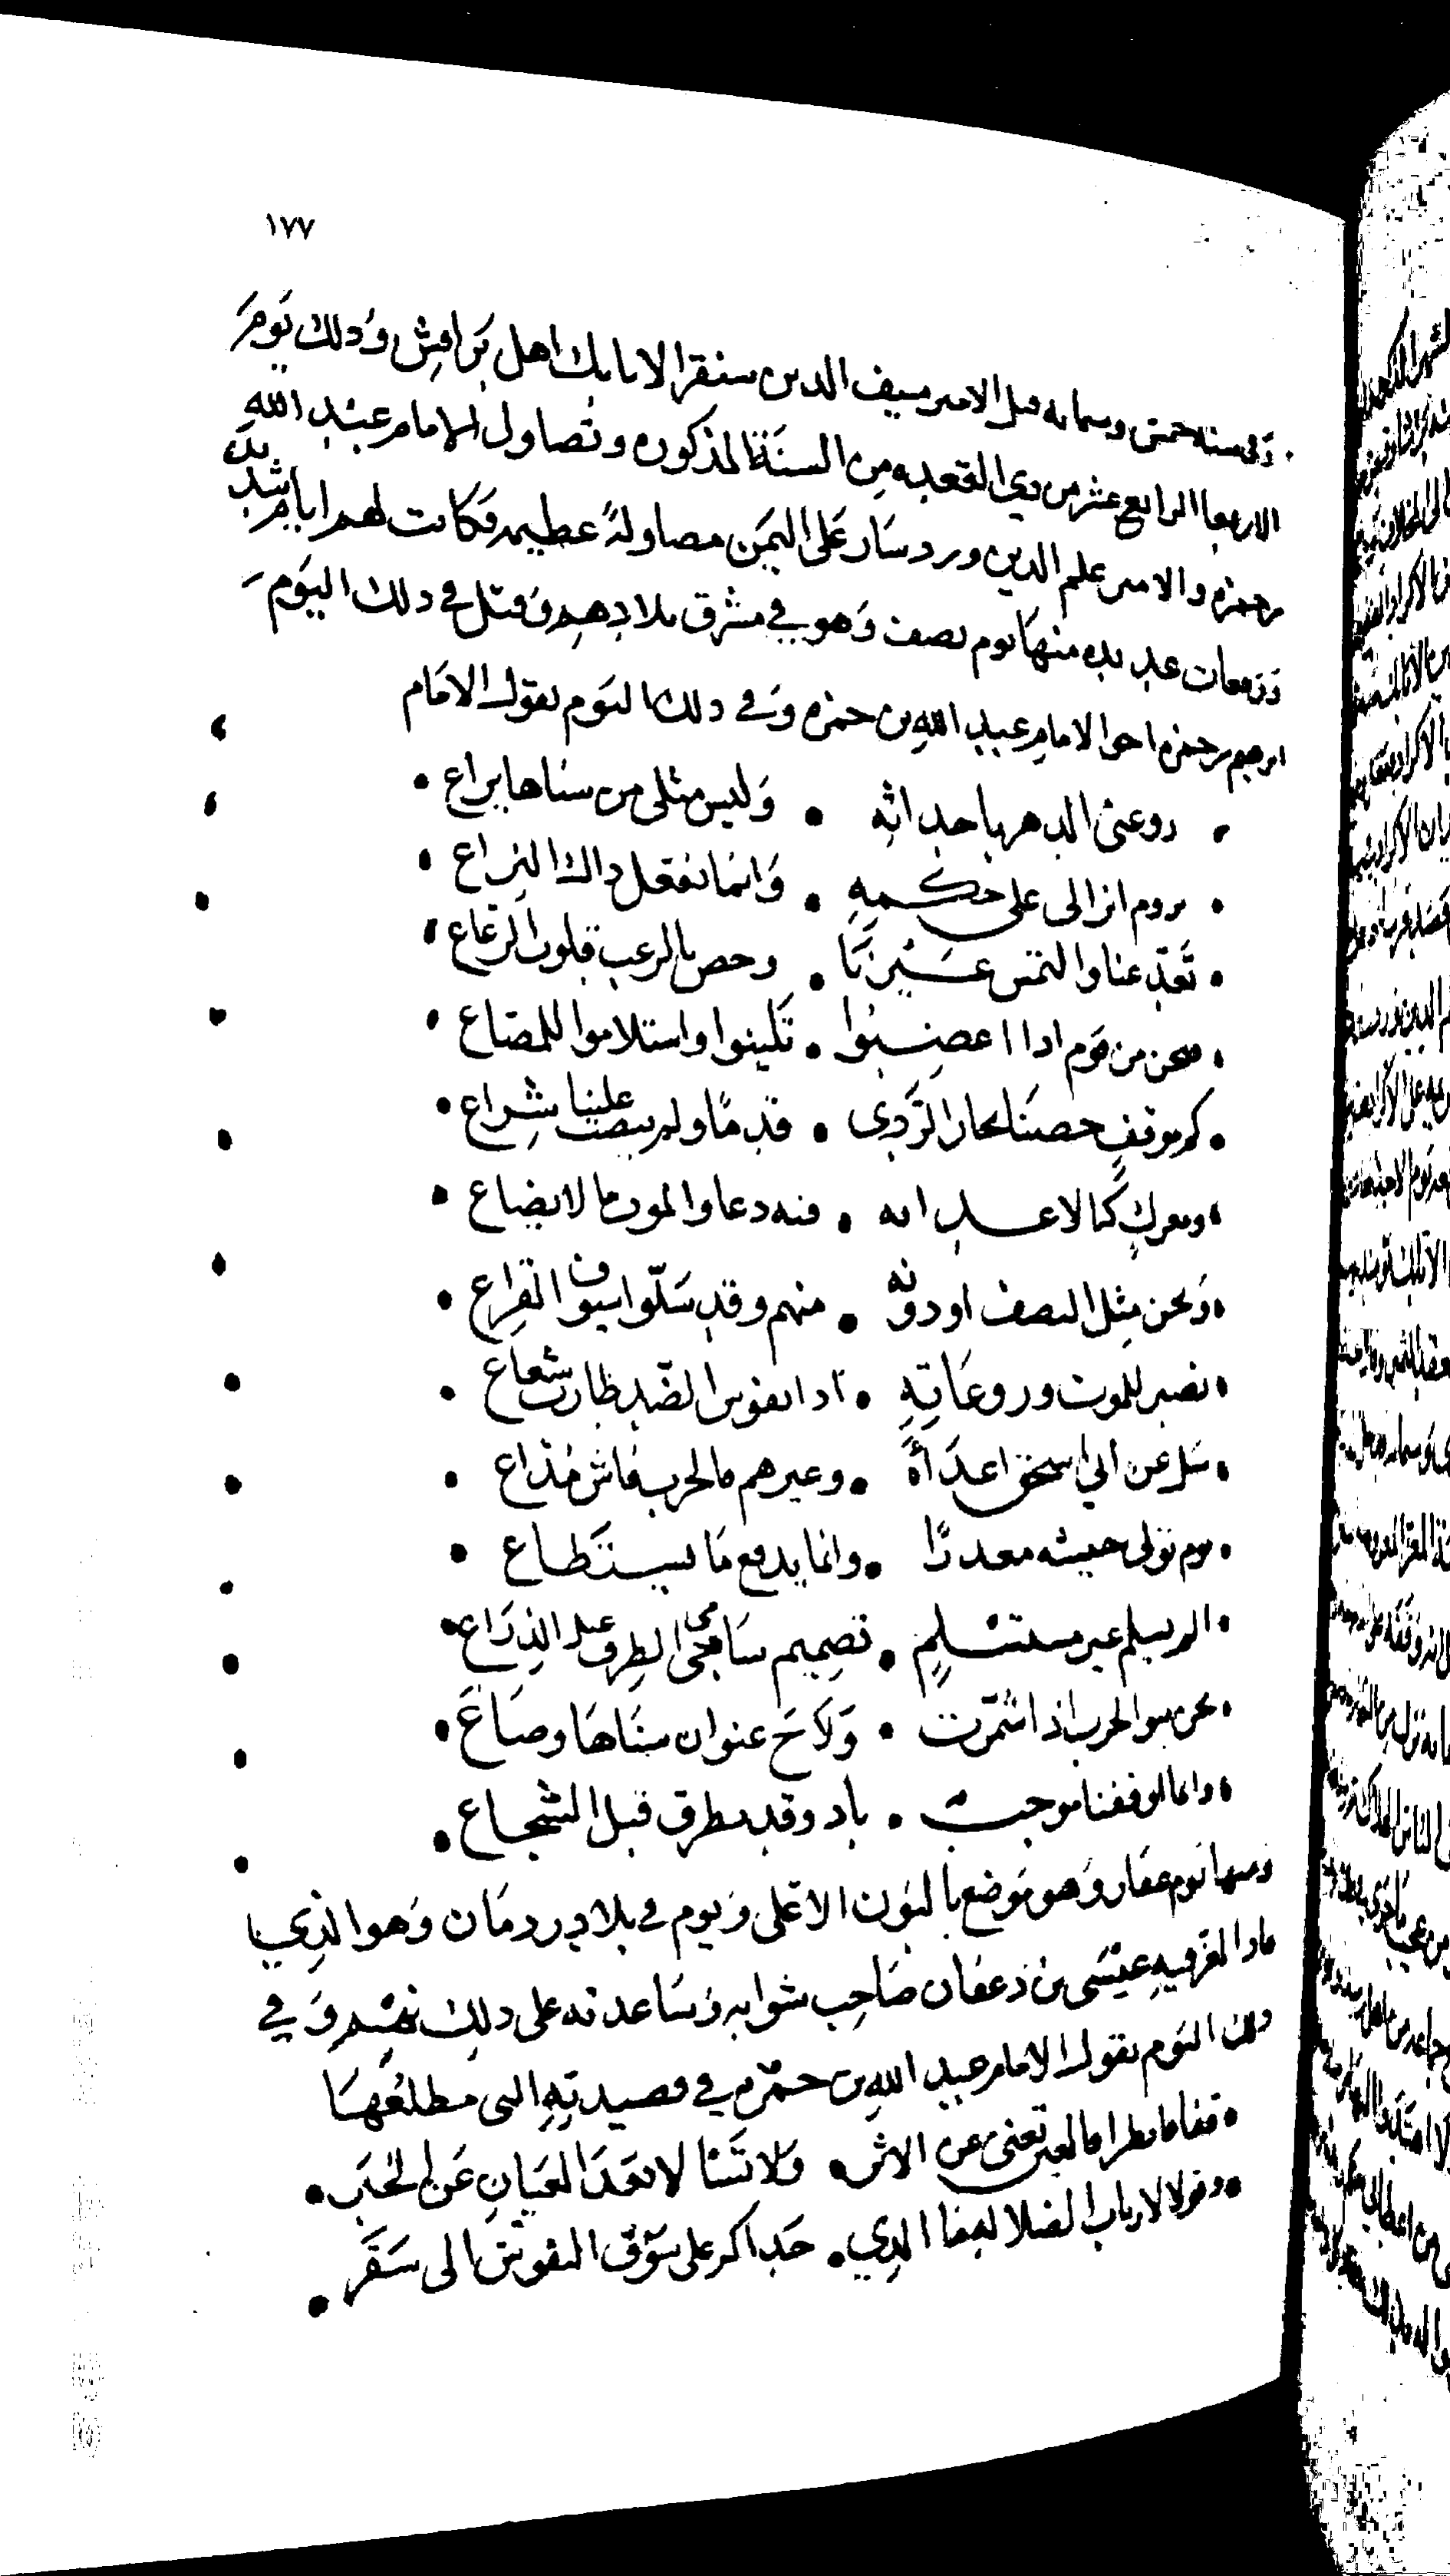 ١٧٧
وفي سنة خمس وستمايه قتل الامير سيف الدين سنقر الاتابك اهل براقش وذلك يوم
الاربعا الرابع عشر من ذي القعده من السنة المذكوره وتصاول الامام عبد الله
بن حمزه والامير علم الدين ورد سار على اليمن مصاولةً عظيمه فكانت لهم ايام شديده
ووقعات عديده منها يوم نصف وهو في مشرق بلادهم وقتل في ذلك اليوم
ابرهيم بن حمزه اخو الامام عبد الله بن حمزه وفي ذلك اليوم يقول الامام
روعني الدهر باحداثه • وليس مثلي من سناها يراع
يروم انزالي على حكمه • وانما تفعل ذاك
تعدّ عنا والتمس غيرنا • وخص بالرعب قلوب الرعاع
فنحن من قوم اذا اعصبوا • واستلاموا للمصاع
كم موقف خضنا بحار الردى • قدمًا ولم ينصب علينا شراع
ومعرك • فيه دعاوا الموت ما لا يضاع
ونحن مثل النصف او دونه • منهم وقد سلّوا سيوف القراع
نصبر للموت وروعاته • اذا نفوس الضد طارت شعاع
سل عن ابي اسحق اعداءهُ • وغيرهم فالحرب فاش مُذاع
يوم تولى جيشه • وانما يدفع ما يستطاع
الم يسلم غير مستسلم • تصميم سامي الطرف عبل الذراع
نحن بنو الحرب اذا شمّرت • ولاح عنوان سناها وصاع
وانما لوقفنا موجب • باد وقد يطرق قبل الشجاع
ومنها يوم عفار وهو موضع بالبون الاعلى ويوم في بلاد ردمان وهو الذي
فيه عيسى بن ذعفان صاحب شوابه وساعدته على ذلك نهم وفي
ذلك اليوم يقول الامام عبد الله بن حمزه في قصيدته التي مطلعها
قفا فانظرا فالعين تغني عن الاثر • ولا تسلا لا بعد العيان عن الخبر
وقولا لارباب الضلاله ما الذي • حداكم على سوق النفوس الى سقر